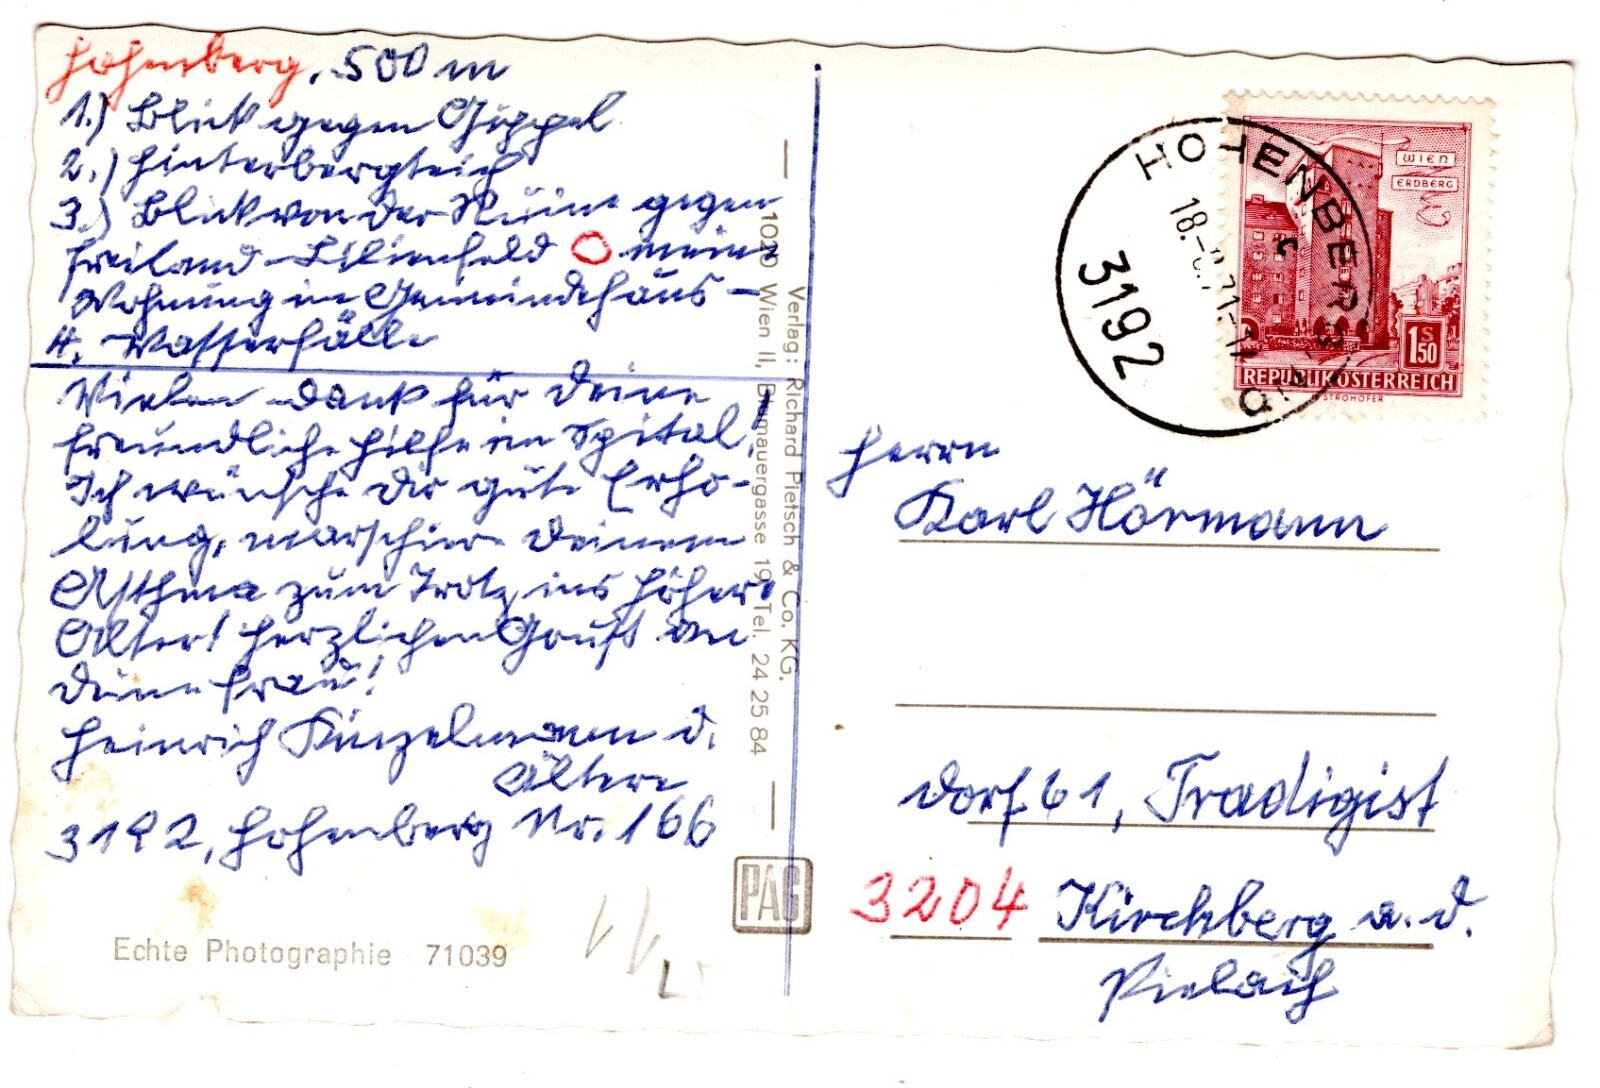 Hohenberg, 500 m
1.) Blick gegen Gippel
2.) Hinterbergteich
3.) Blick von der Ruine gegen
Freiland - Lilienfeld O meine
Wohnung im Gemeindehaus -
4. Wasserfälle
Vielen Dank für Deine
freundliche Hilfe im Spital!
Ich wünsche Dir gute Erho-
lung, marschiere Deinem
Asthma zum Trotz ins höhere
Alter! Herzlichen Gruß an
Deine Frau!
Heinrich Kinzelmann d.
Ältere
3192, Hohenberg Nr. 166
Echte Photographie 71039
Verlag: Richard Pietsch & Co. KG,
1020 Wien II, Blumauergasse 19, Tel. 24 25 84
PAG
HOHENBERG, NÖ
3192
WIEN
ERDBERG
1 S 50
REPUBLIK ÖSTERREICH
STROHOFER
Herrn
Karl Hörmann
Dorf 61, Tradigist
3204 Kirchberg a. d.
Pielach